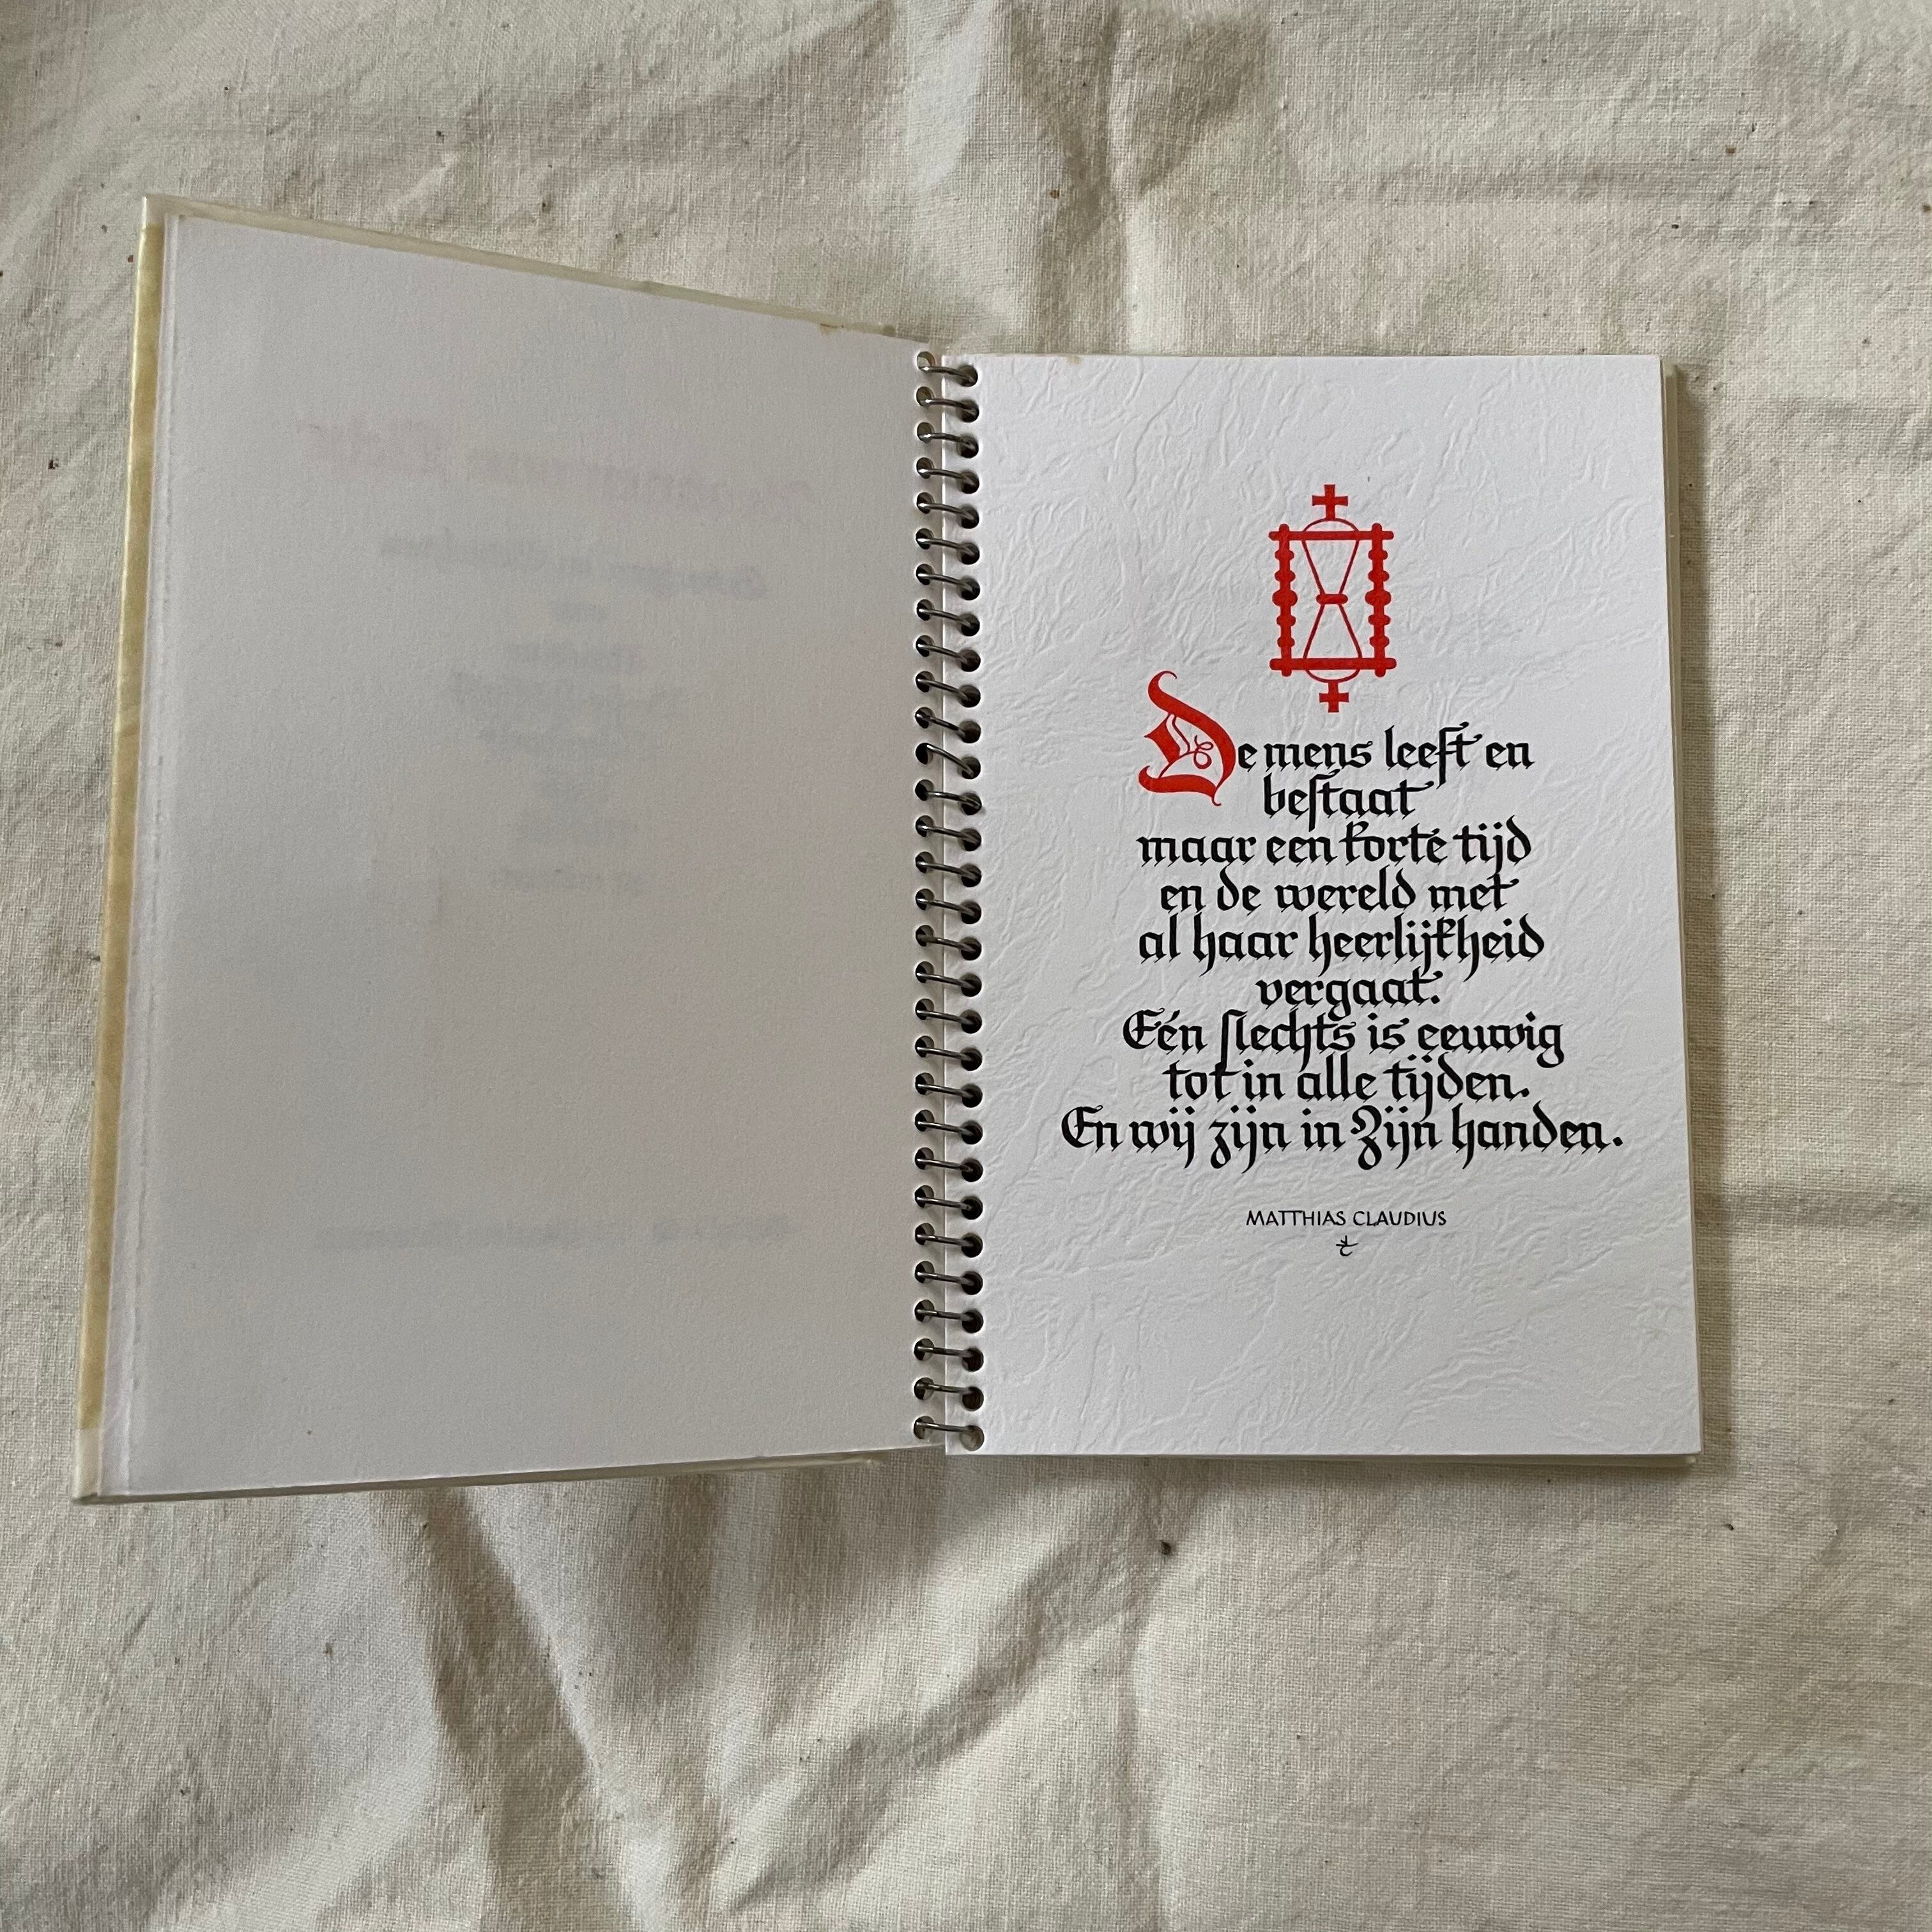 De mens leeft en
bestaat
maar een korte tijd
en de wereld met
al haar heerlijkheid
vergaat.
Eén slechts is eeuwig
tot in alle tijden.
En wij zijn in Zijn handen.
MATTHIAS CLAUDIUS